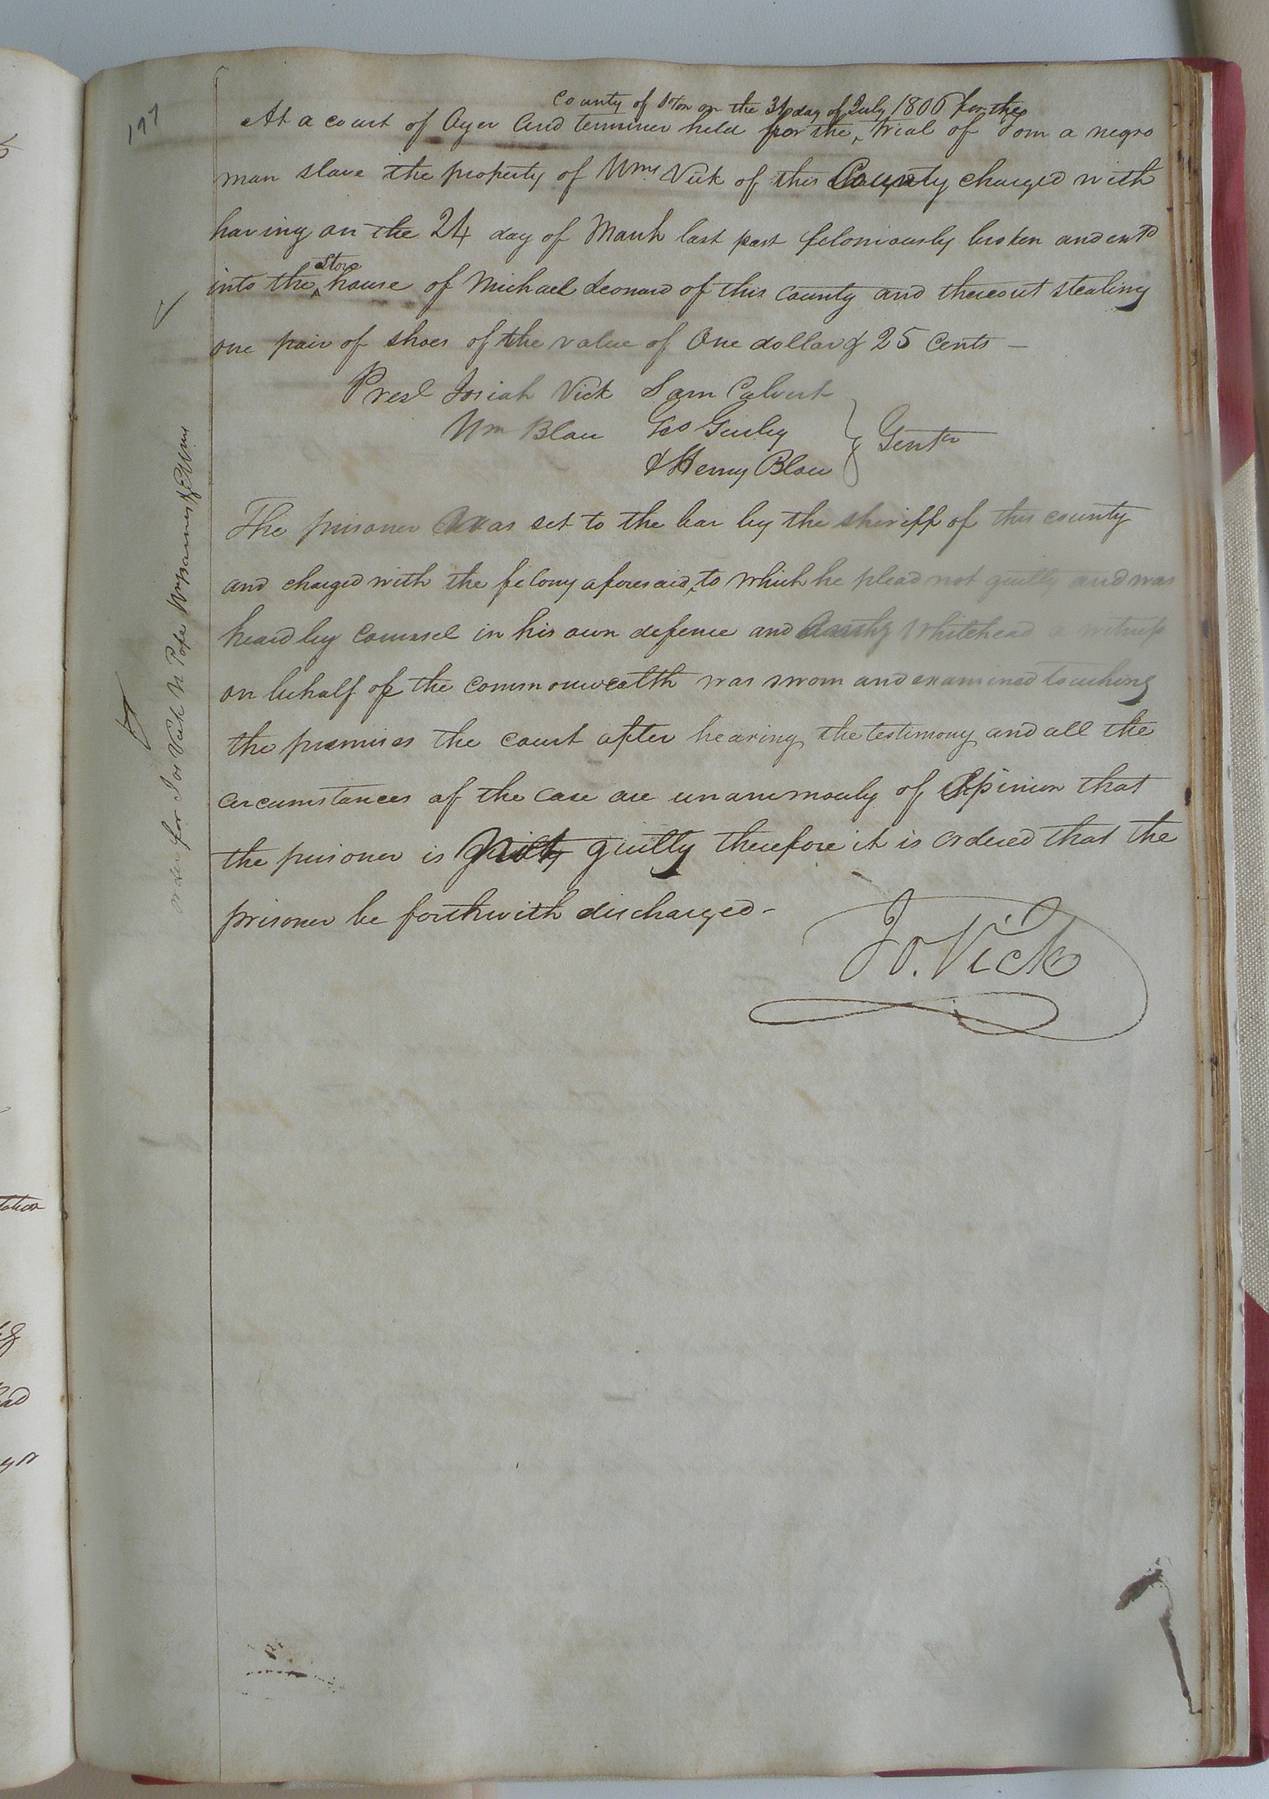 177
county of S'ton on the 31 day of July 1806 for the
At a court of Oyer and terminer held for the trial of Tom a negro
man slave the property of Wm Vick of this County charged with
having on the 24 day of March last past feloniously broken and entd
store
into the house of Michael Leonard of this county and thereout stealing
one pair of shoes of the value of One dollar & 25 Cents —
Prest Josiah Vick Sam Calvert
Wm Blow Gurley
& Henry Blow Gentn
The prisoner was set to the bar by the sheriff of this county
and charged with the felony aforesaid, to which he plead not guilty and was
heard by counsel in his own defence and Whitehead a witness
on behalf of the commonwealth was sworn and examined touching
the premises the court after hearing the testimony and all the
circumstances of the case are unanimously of Opinion that
the prisoner is Not guilty therefore it is ordered that the
prisoner be forthwith discharged -
Jo. Vick
order for Jos Vick N Pope